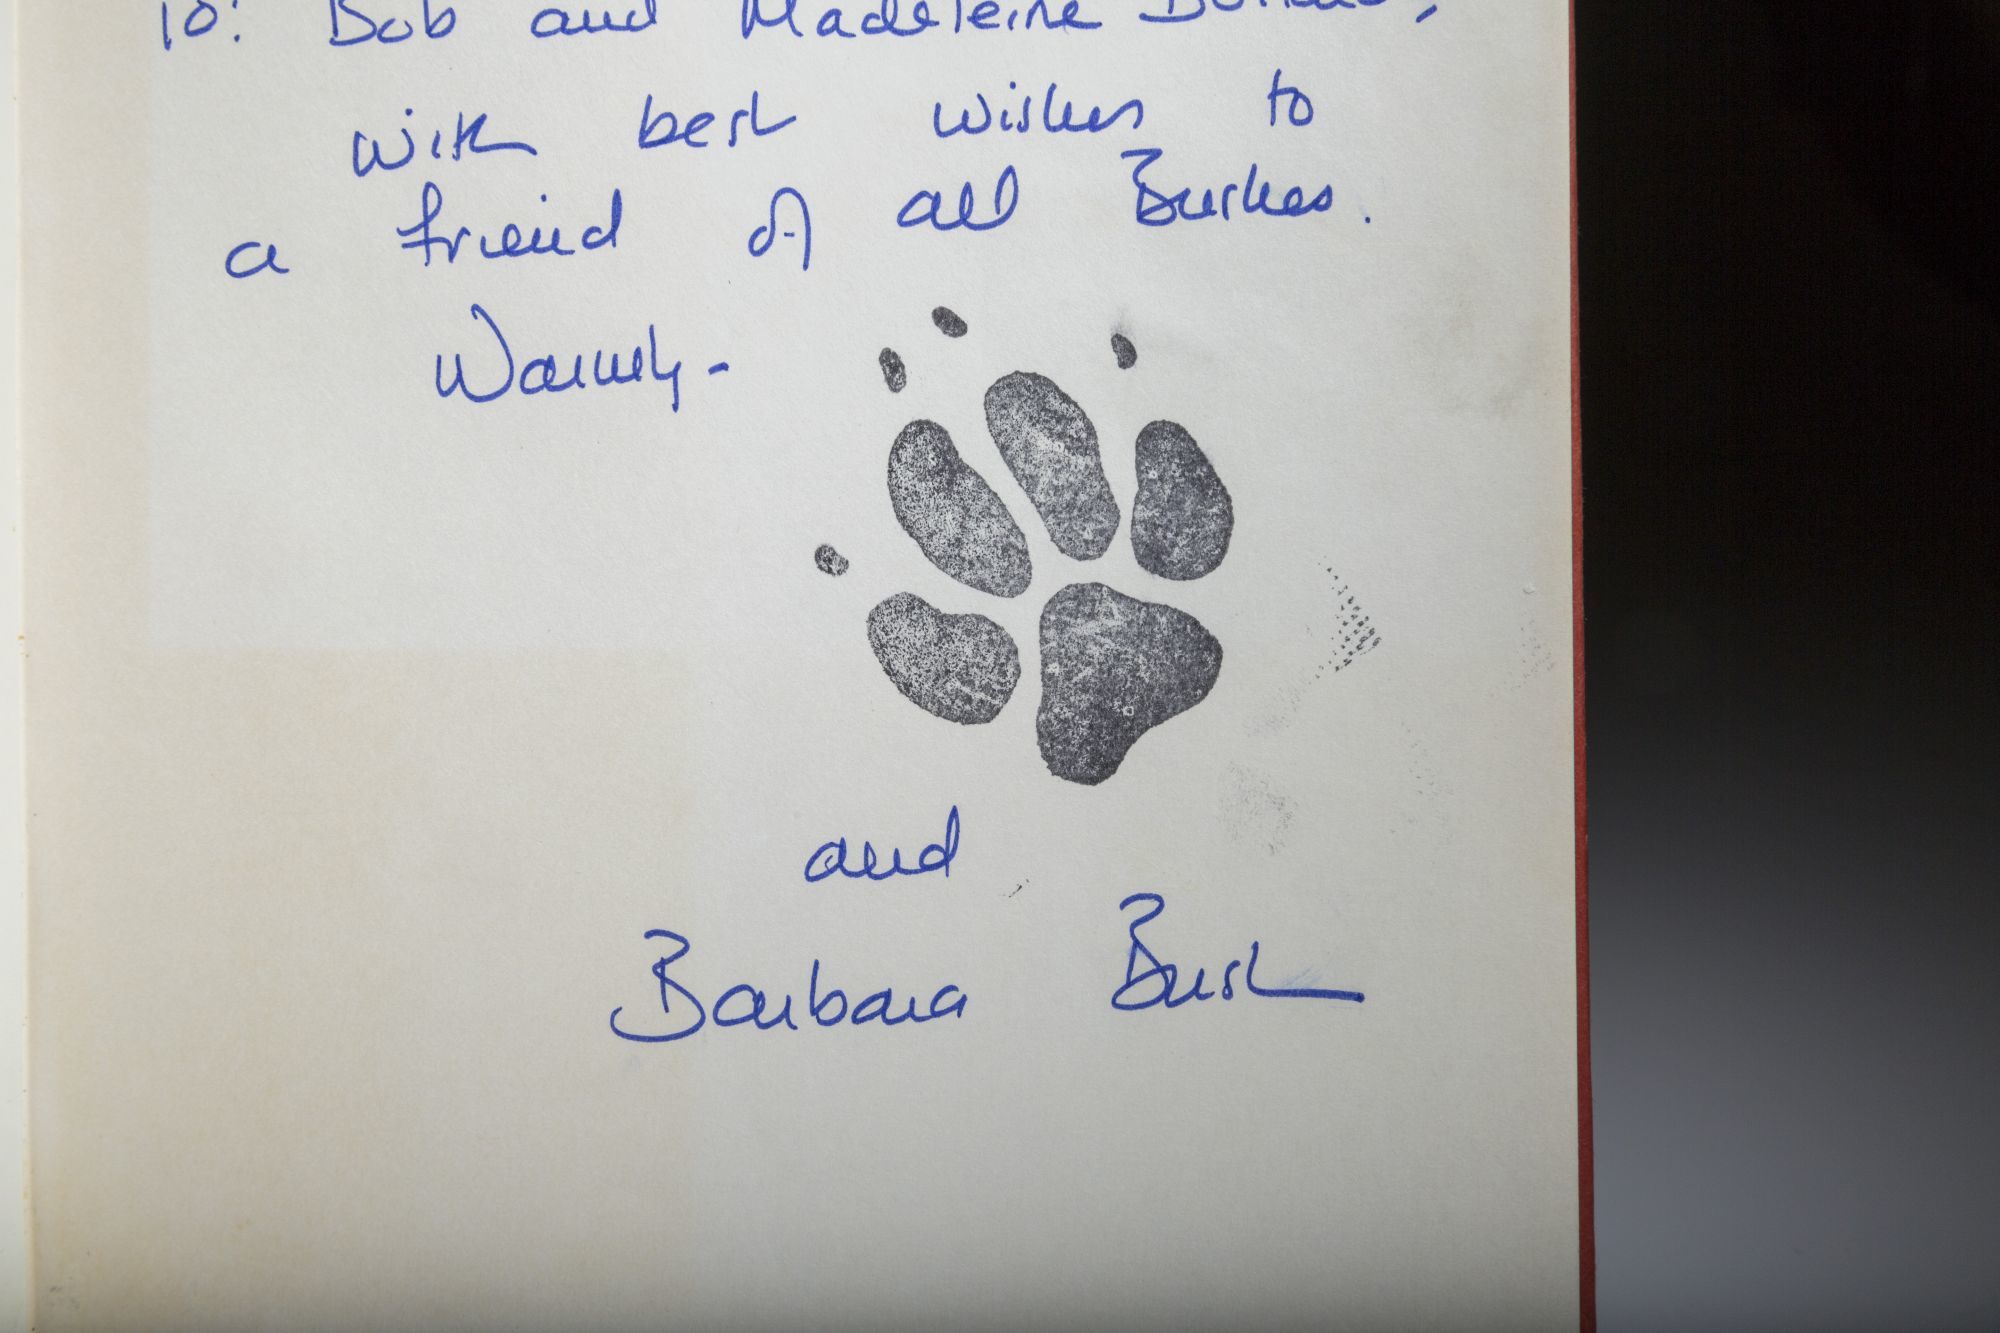 To: Bob and Madeleine
with best wishes to
a friend of all Burkes.
Warmly -
and
Barbara Bush